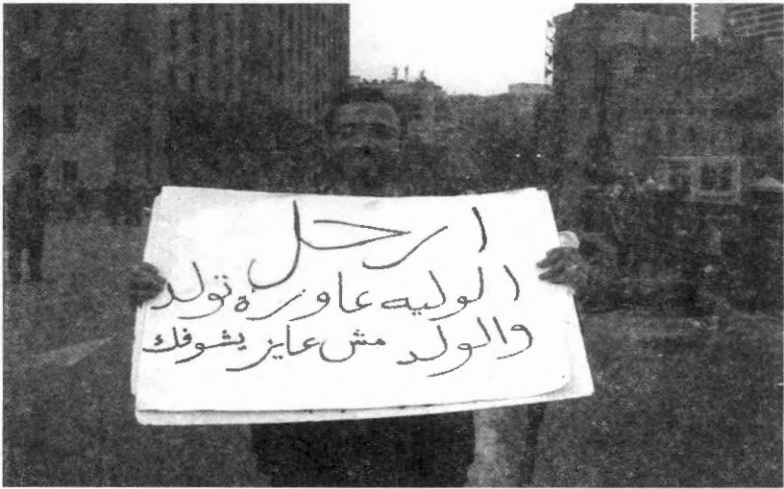 ارحل
الوليه عاوزة تولد
والولد مش عايز يشوفك